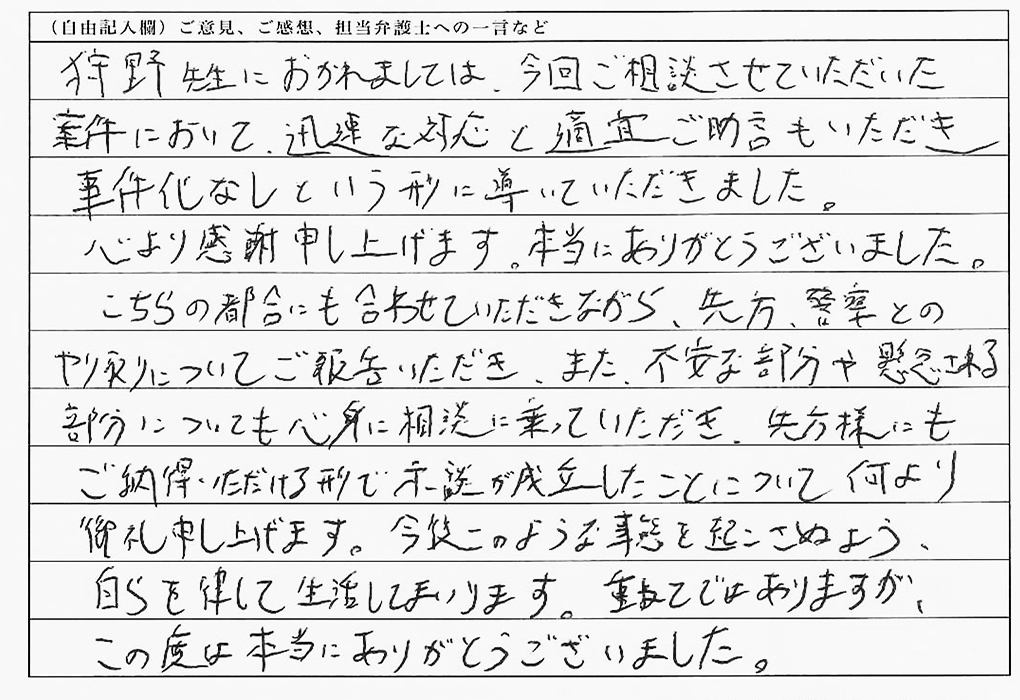 （自由記入欄）ご意見、ご感想、担当弁護士への一言など
狩野先生におかれましては、今回ご相談させていただいた
案件において、迅速な対応と適宜ご助言もいただき
事件化なしという形に導いていただきました。
心より感謝申し上げます。本当にありがとうございました。
こちらの都合にも合わせていただきながら、先方、警察との
やり取りについてご報告いただき、また、不安な部分や懸念される
部分についても心身に相談に乗っていただき、先方様にも
ご納得いただける形で示談が成立したことについて何より
御礼申し上げます。今後このような事態を起こさぬよう、
自らを律して生活してまいります。重ねてではありますが、
この度は本当にありがとうございました。